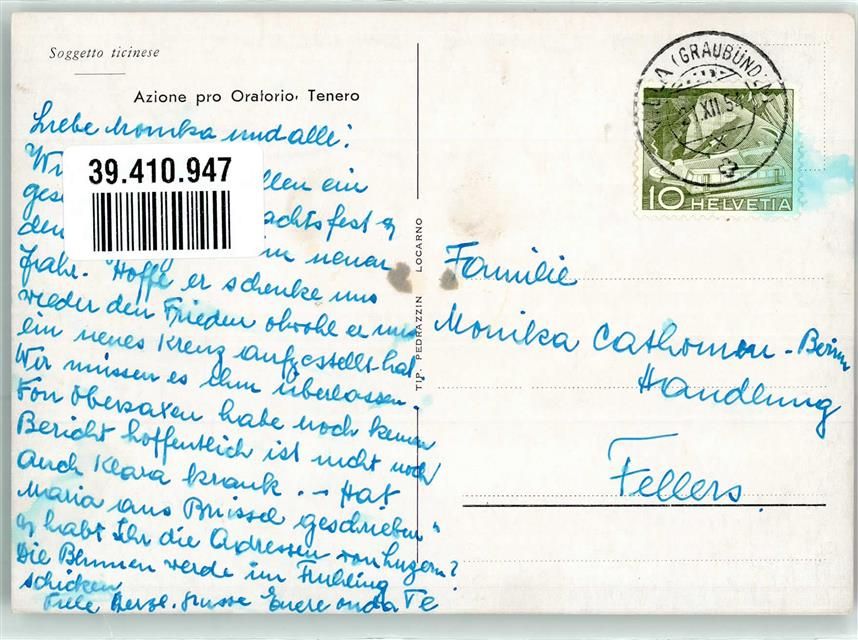 Soggetto ticinese
Azione pro Oratorio, Tenero
Liebe Monika und alle!
39.410.947
Wir ein
den achtsfest &
neuen
Jahr. Hoffe er schenke uns
wieder den Frieden obwohl er uns
ein neues Kreuz aufgestellt hat.
Wir müssen es ihm überlassen.
Von Obersaxen habe noch keinen
Bericht hoffentlich ist nicht noch
auch Klara krank. - Hat
Maria aus Brüssel geschrieben
& habt Ihr die Adressen von Luzern?
Die Blumen werde im Frühling
schicken
Viele herzl. Grüsse Eure
TIP. PEDRAZZINI LOCARNO
(GRAUBÜNDEN)
XII.5
10 HELVETIA
Familie
Monika Cathomen - Beirn
Handlung
Fellers